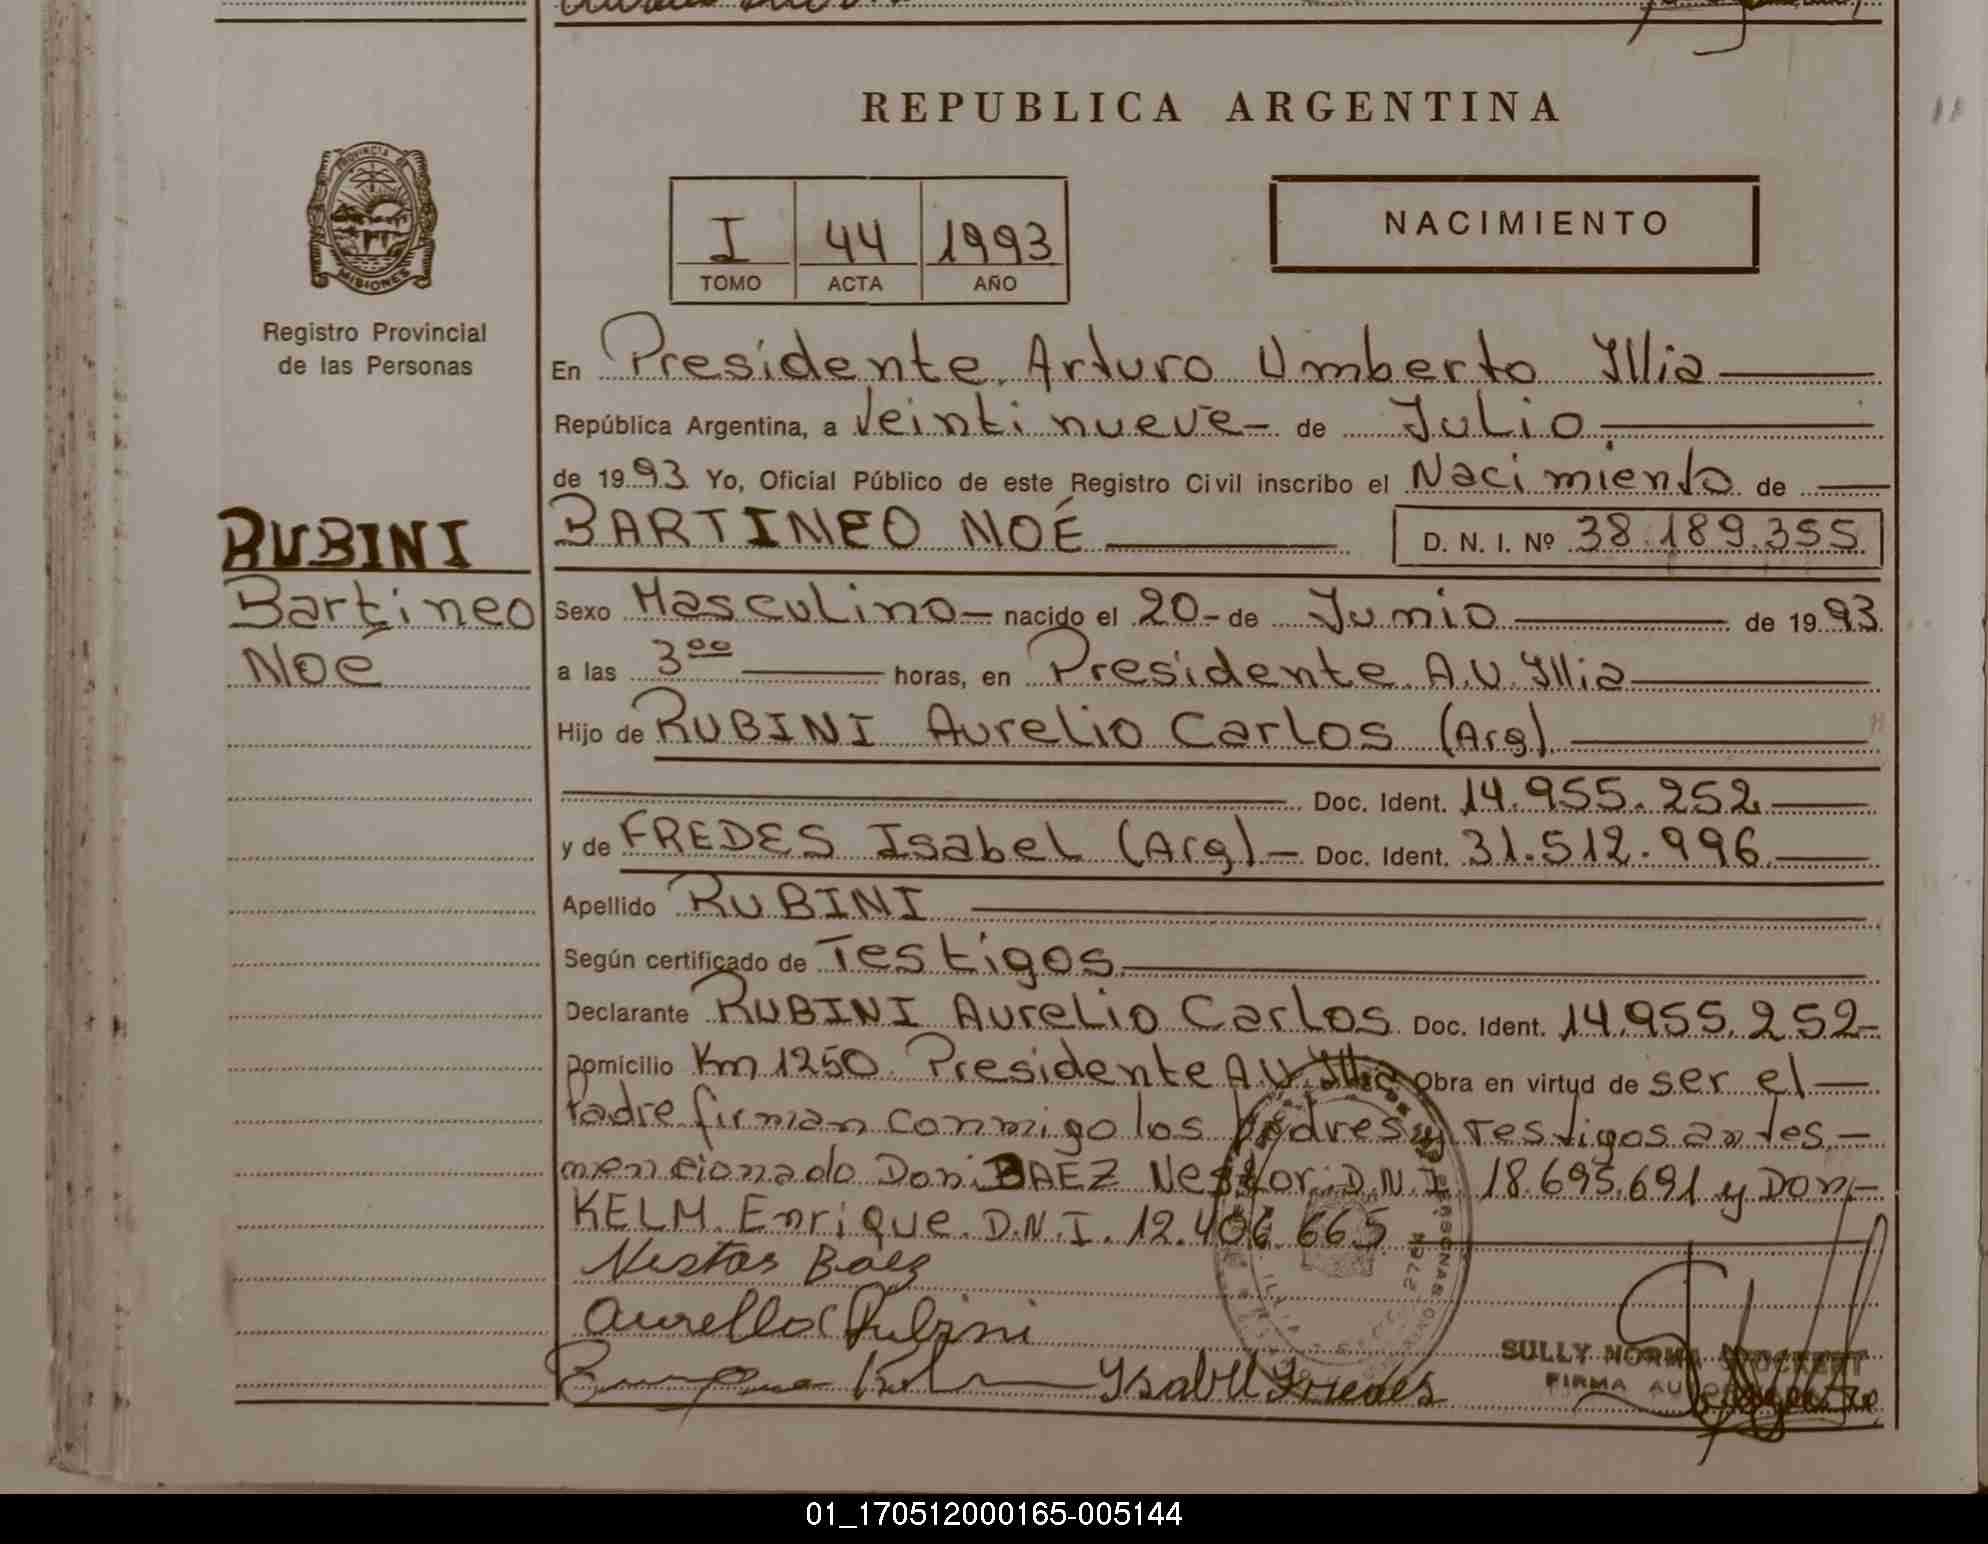 REPUBLICA ARGENTINA
PROVINCIA DE
MISIONES
Registro Provincial
de las Personas
I 44 1993
TOMO ACTA AÑO
NACIMIENTO
En Presidente Arturo Umberto Illia
República Argentina, a Veinti nueve - de Julio
de 1993 Yo, Oficial Público de este Registro Civil inscribo el Nacimiento de
RUBINI
Bartineo
Noé
BARTINEO NOÉ D. N. I. Nº 38.189.355
Sexo Masculino - nacido el 20 - de Junio de 1993
a las 3 00 horas, en Presidente A.U. Illia
Hijo de RUBINI Aurelio Carlos (Arg)
Doc. Ident. 14.955.252
y de FREDES Isabel (Arg) - Doc. Ident. 31.512.996
Apellido RUBINI
Según certificado de Testigos
Declarante RUBINI Aurelio Carlos Doc. Ident. 14.955.252-
Domicilio Km 1250 Presidente A.U. Illia Obra en virtud de ser el
Padre firman conmigo los padres y Testigos antes -
mencionado Don: BAEZ Nestor: D.N.I. 18.695.691 y Don,-
KELM Enrique D.N.I. 12.406.665
Nestor Baez
Aurelio C Rubini
Ysabel Fredes
SULLY NORMA
FIRMA
01_170512000165-005144